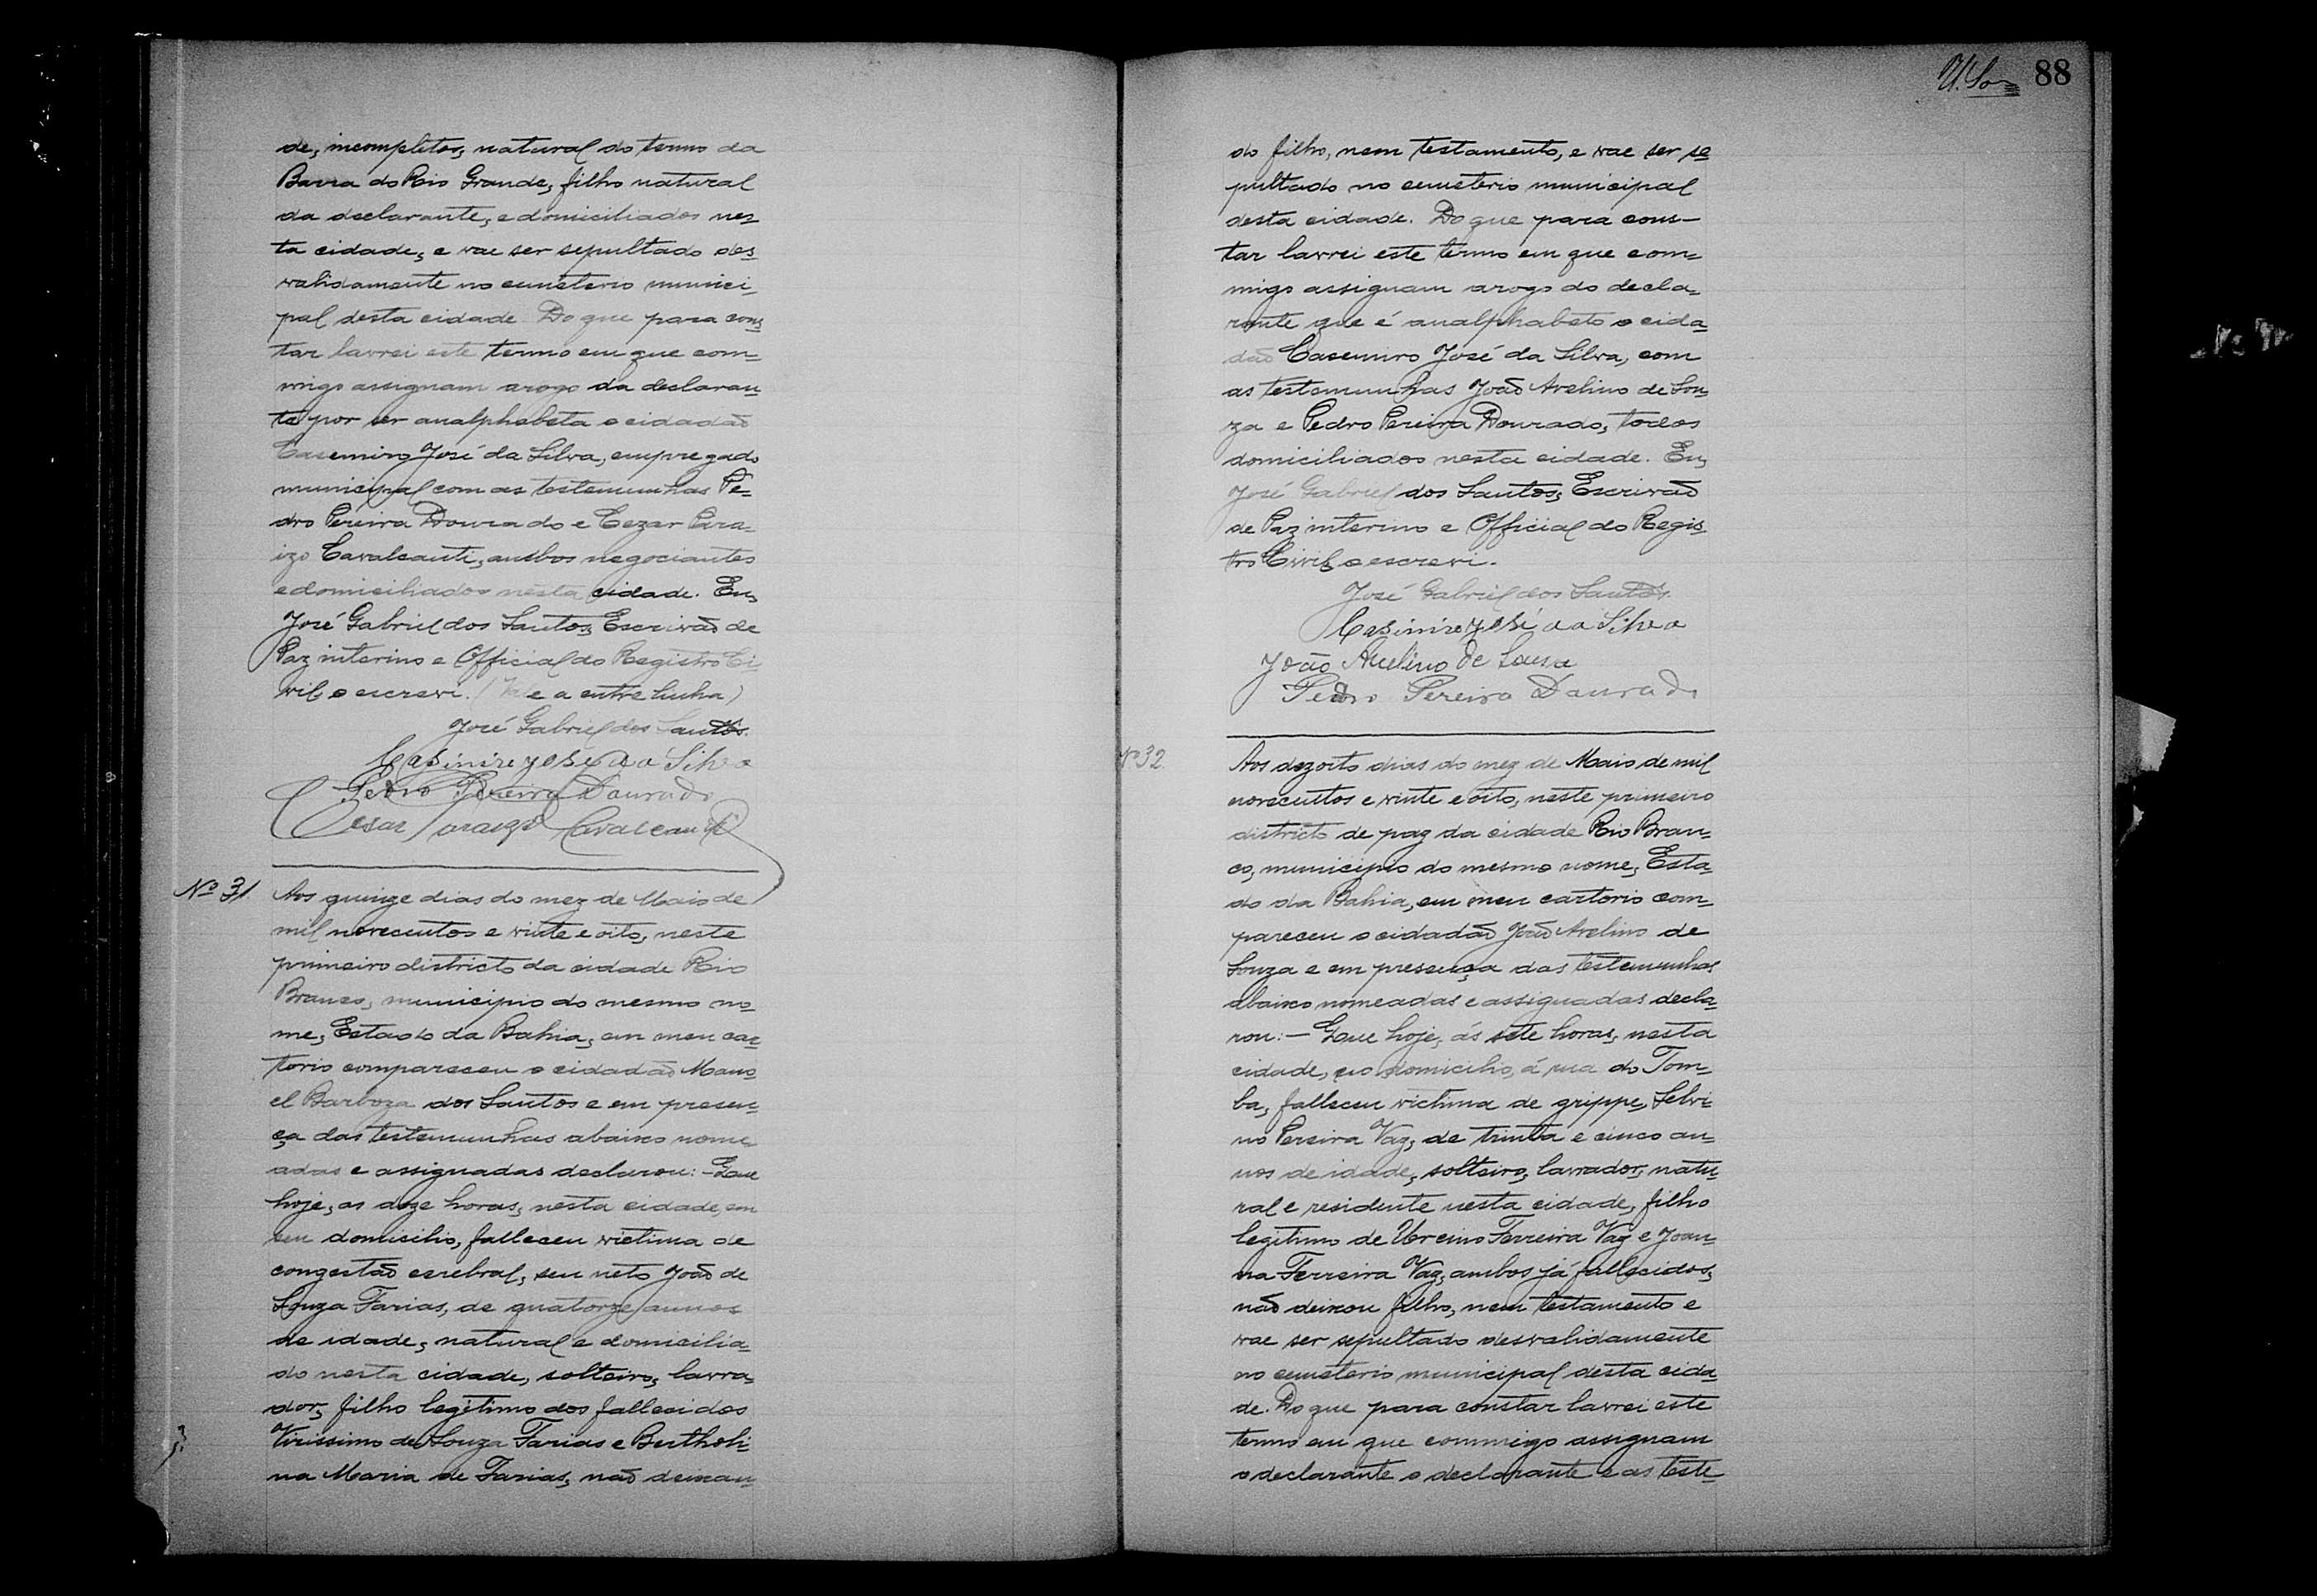 de, incompletos, natural do termo da
Barra do Rio Grande, filho natural
da declarante, e domiciliados nes-
ta cidade, e vae ser sepultado des-
validamente no cemeterio munici-
pal desta cidade Do que para cons-
tar lavrei este termo em que com-
migo assignam arogo da declaran-
te por ser analphabeta o cidadão
Casemiro José da Silva, empregado
municipal com as testemunhas Pe-
dro Pereira Dourado e Cezar Para-
izo Cavalcanti, ambos negociantes
e domiciliados nesta cidade. Eu,
José Gabriel dos Santos, Escrivão de
Paz interino e Official do Registro Ci
vil o escrevi. (Vale a entre linha)
José Gabriel dos Santos.
Casimiro José da Silva
Pedro Pereira Dourado
Cesar Paraizo Cavalcanti
Nº 31. Aos quinze dias do mez de Maio de
mil novecentos e vinte e oito, neste
primeiro districto da cidade Rio
Branco, municipio do mesmo no-
me, Estado da Bahia, em meu car-
torio compareceu o cidadão Mano-
el Barboza dos Santos e em presen-
ça das testemunhas abaixo nome
adas e assignadas declarou: - Que
hoje, as doze horas, nesta cidade, em
seu domicilio, falleceu victima de
congestão cerebral, seu neto João de
Souza Farias, de quatorze annos
de idade, natural e domicilia-
do nesta cidade, solteiro, lavra-
dor, filho legitimo dos fallecidos
Virissimo de Souza Farias e Bertholi-
na Maria de Farias, não deixan-
88
do filho, nem testamento, e vae ser se
pultado no cemeterio municipal
desta cidade. Do que para cons-
tar lavrei este termo em que com-
migo assignam arogo do decla-
rante que é analphabeto o cida-
dão Casemiro José da Silva, com
as testemunhas João Avelino de Sou-
za e Pedro Pereira Dourado, todos
domiciliados nesta cidade. Eu,
José Gabriel dos Santos, Escrivão
de Paz interino e Official do Regis-
tro Civil o escrevi.
José Gabriel dos Santos.
Casimiro José da Silva
João Avelino de Sousa
Pedro Pereira Dourado
Nº 32. Aos dezoito dias do mez de Maio de mil
novecentos e vinte e oito, neste primeiro
districto de paz da cidade Rio Bran-
co, municipio do mesmo nome, Esta-
do da Bahia, em meu cartorio com-
pareceu o cidadão João Avelino de
Souza e em presença das testemunhas
abaixo nomeadas e assignadas decla-
rou: - Que hoje, ás sete horas, nesta
cidade, no domicilio, á rua do Tom-
ba, falleceu victima de grippe, Selvi
no Pereira Vaz, de trinta e cinco an-
nos de idade, solteiro, lavrador, natu-
ral e residente nesta cidade, filho
legitimo de Urcino Ferreira Vaz e Joan-
na Ferreira Vaz, ambos já fallecidos,
não deixou filho, nem testamento e
vae ser sepultado desvalidamente
no cemeterio municipal desta cida-
de. Do que para constar lavrei este
termo em que commigo assignam
o declarante o declarante e as teste-